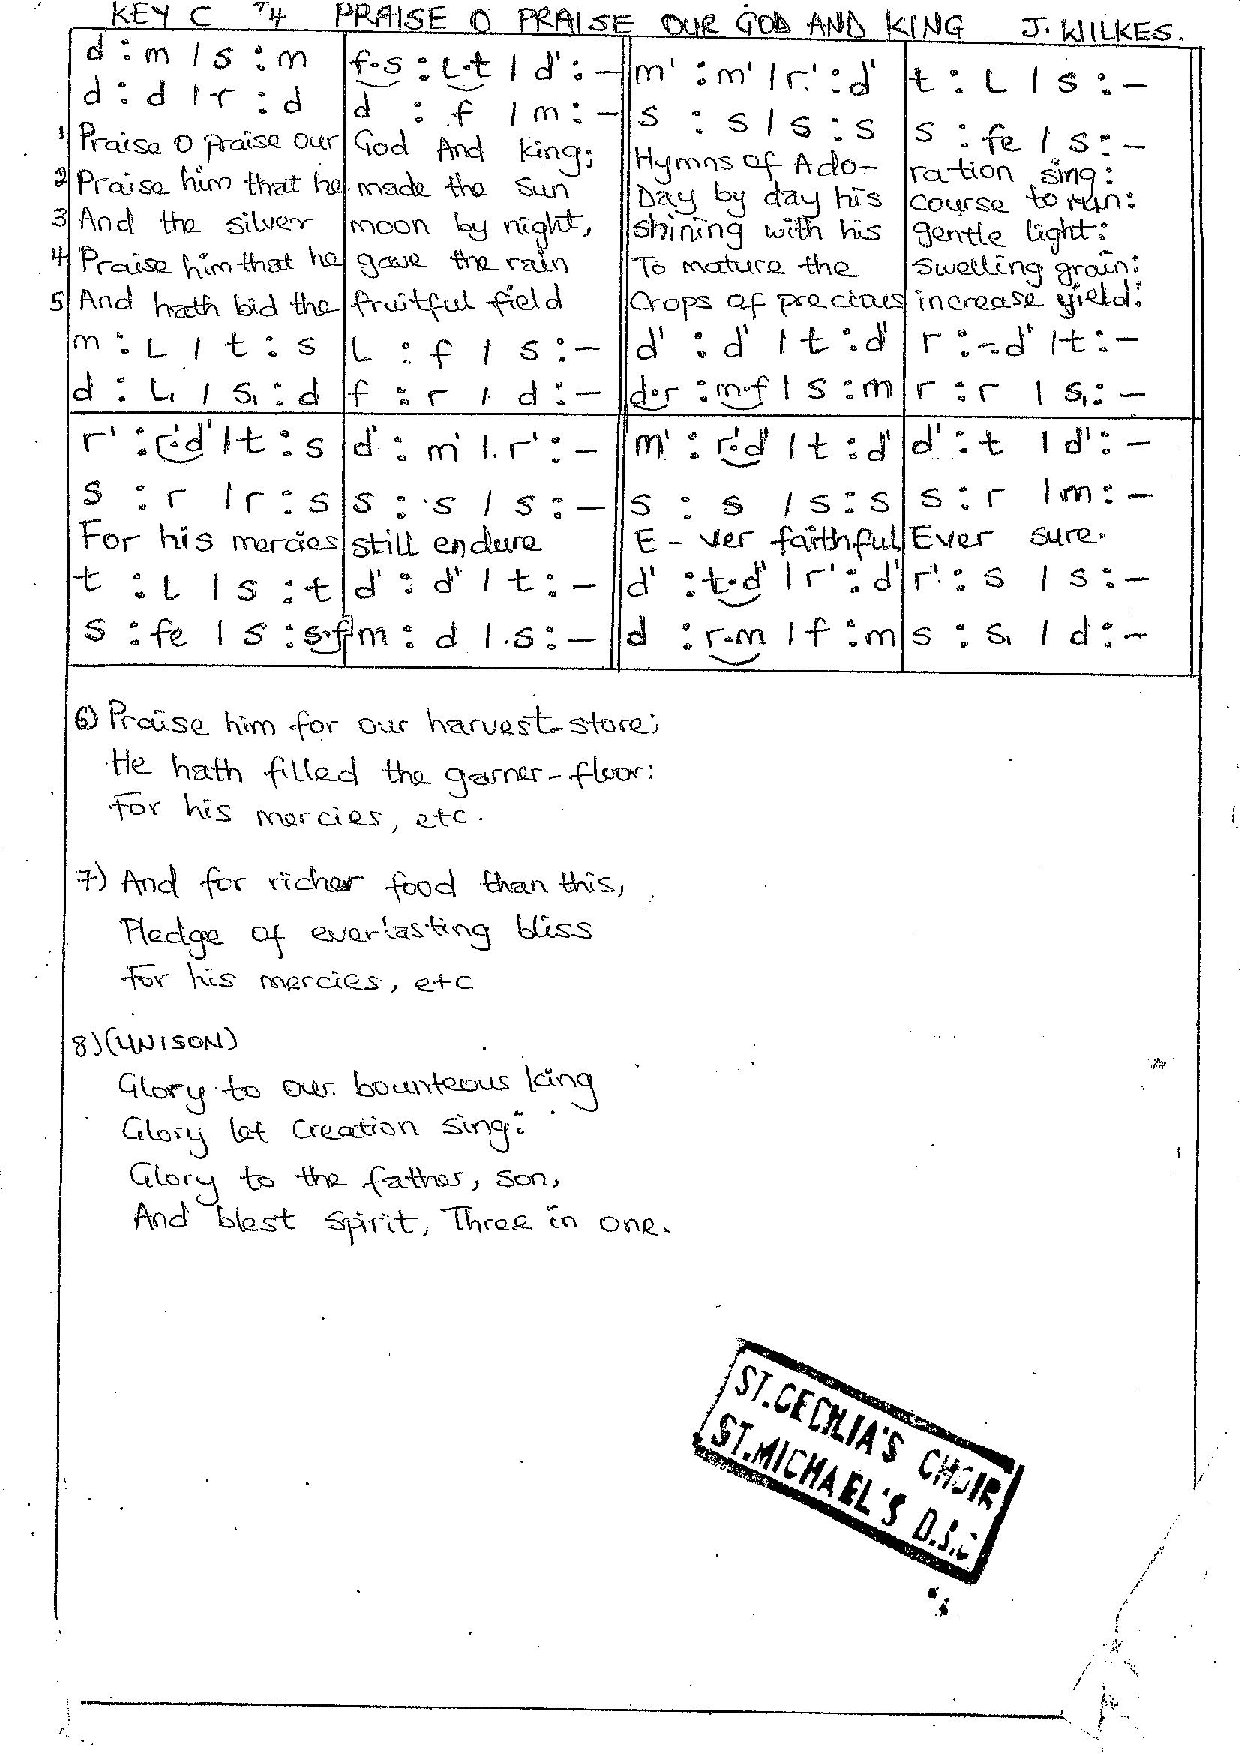 KEY C 4 PRAISE O PRAISE OUR GOD AND KING J. WILKES.
d : m / s : m f.s : L.t / d' : – m' : m' / r' : d' t : L / s : –
d : d / r : d d : f / m : – s : s / s : s s : fe / s : –
1 Praise O praise our God And king; Hymns of Ado- ration sing:
2 Praise him that he made the sun Day by day his course to run:
3 And the silver moon by night, shining with his gentle light:
4 Praise him that he gave the rain To mature the swelling grain:
5 And hath bid the fruitful field Crops of precious increase yield:
m : L / t : s L : f / s : – d' : d' / t : d' r : -.d' / t : –
d : L, / s, : d f : r / d : – d.r : m.f / s : m r : r / s, : –
r' : r'.d' / t : s d' : m' / r' : – m' : r'.d' / t : d' d' : t / d' : –
s : r / r : s s : s / s : – s : s / s : s s : r / m : –
For his mercies still endure E - ver faithful Ever sure.
t : L / s : t d' : d' / t : – d' : t.d' / r' : d' r' : s / s : –
s : fe / s : s.f m : d / s : – d : r.m / f : m s : s, / d : –
6) Praise him for our harvest-store;
He hath filled the garner-floor:
For his mercies, etc.
7) And for richer food than this,
Pledge of everlasting bliss
For his mercies, etc
8) (UNISON)
Glory to our bounteous king
Glory let Creation sing:
Glory to the father, son,
And blest spirit, Three in one.
ST.CECILIA'S CHOIR
ST.MICHAEL'S D.S.C